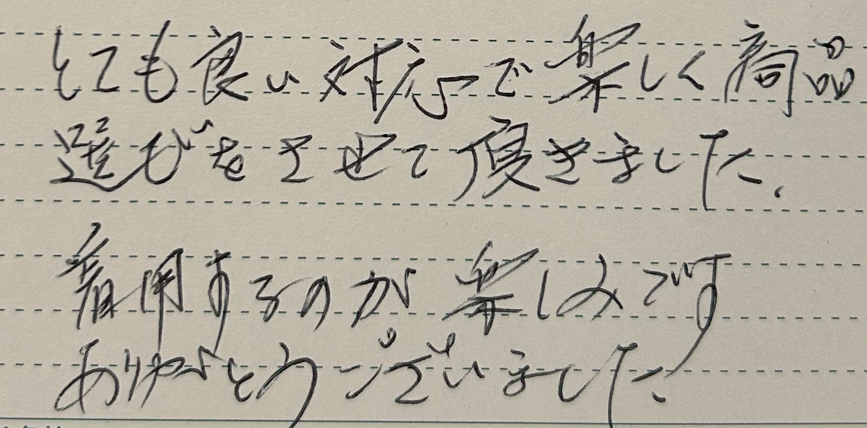 とても良い対応で楽しく商品
選びをさせて頂きました。
着用するのが楽しみです
ありがとうございました